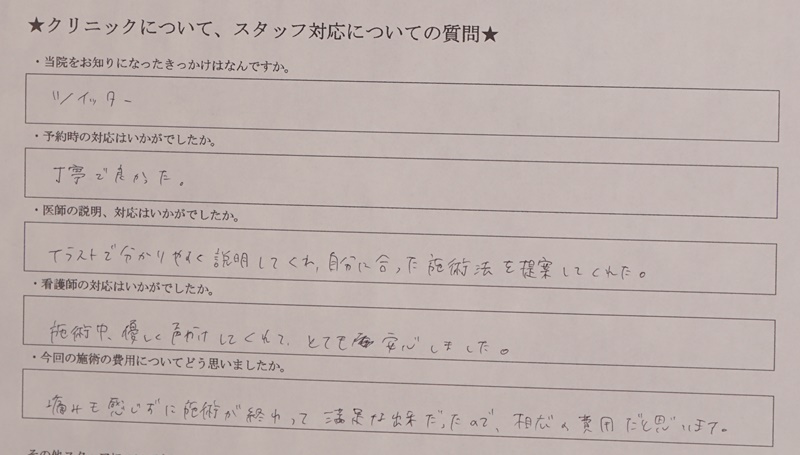 ★クリニックについて、スタッフ対応についての質問★
・当院をお知りになったきっかけはなんですか。
ツイッター
・予約時の対応はいかがでしたか。
丁寧で良かった。
・医師の説明、対応はいかがでしたか。
イラストで分かりやすく説明してくれ、自分に合った施術法を提案してくれた。
・看護師の対応はいかがでしたか。
施術中、優しく声かけしてくれて、とても安心しました。
・今回の施術の費用についてどう思いましたか。
痛みも感じずに施術が終わって満足な出来だったので、相応の費用だと思います。